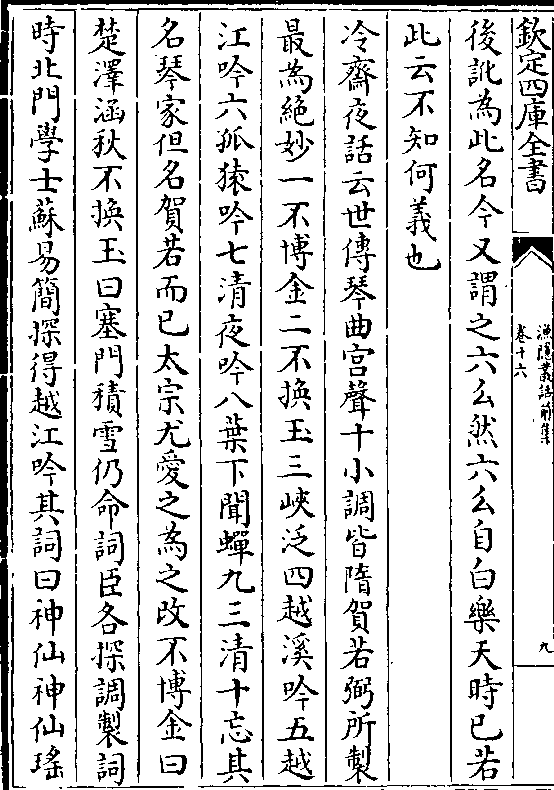 欽定四庫全書
漁隱叢話前集
卷十六
九
後訛為此名今又謂之六么然六么自白樂天時已若
此云不知何義也
冷齋夜話云世傳琴曲宮聲十小調皆隋賀若弼所製
最為絕妙一不博金二不換玉三峽泛四越溪吟五越
江吟六孤猿吟七清夜吟八葉下聞蟬九三清十忘其
名琴家但名賀若而已太宗尤愛之為之改不博金曰
楚澤涵秋不換玉曰塞門積雪仍命詞臣各探調製詞
時北門學士蘇易簡探得越江吟其詞曰神仙神仙瑤